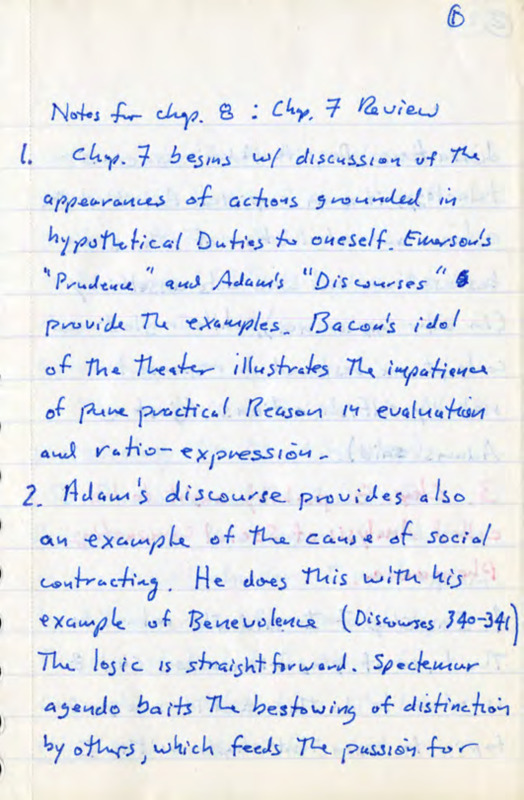 1
Notes for chap. 8 : Chap. 7 Review
1. Chap. 7 begins w/ discussion of the
appearances of actions grounded in
hypothetical Duties to oneself. Emerson's
"Prudence" and Adam's "Discourses"
provide the examples. Bacon's idol
of the theater illustrates the impatience
of pure practical Reason in evaluation
and ratio-expression.
2. Adam's discourse provides also
an example of the cause of social
contracting. He does this with his
example of Benevolence (Discourses 340-341)
The logic is straightforward. Spectemur
agendo baits the bestowing of distinction
by others, which feeds the passion for